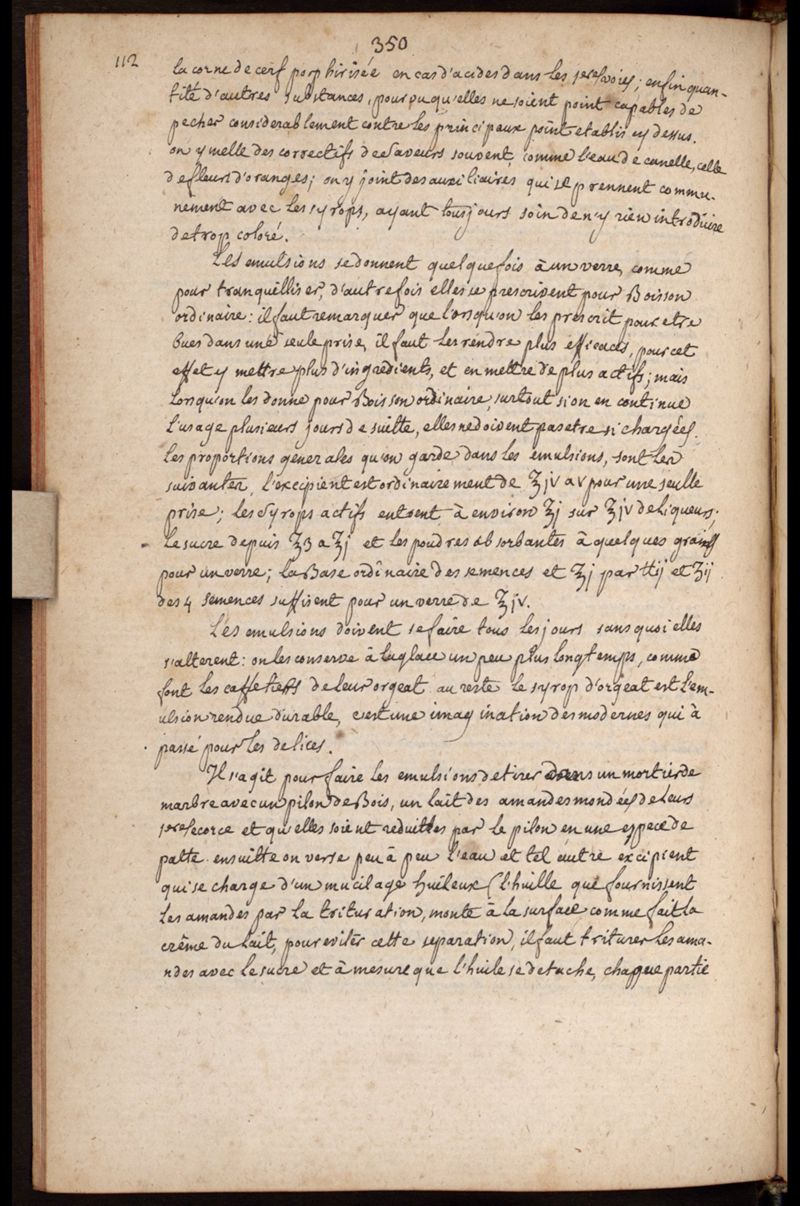 350
112
la corne de cerf porphirisée en cas d'acides dans les 1eres voies; enfin quan-
tité d'autres substances, pourvu qu'elles ne soient point capables de
pecher considerablement contre les principaux point etablis cy dessus.
on y melle des correctifs de Saveurs souvent, comme l'eau de canelle, celle
de fleurs d'oranges; on y joint des auxiliaires qui se prennent commu-
nement avec les syrops, ayant tousjours soin de n'y rien introduire
de trop coloré.
Les emulsions se donnent quelquefois à un verre, comme
pour tranquilliser, d'autrefois elles se prescrivent pour Boisson
ordinaire: il faut remarquer que lorsqu'on les prescrit pour etre
bues dans une seule prise, il faut les rendre plus efficaces, pour cet
effet y mettre plus d'ingredients, et en mettre de plus actifs; mais
lorsqu'on les donne pour Boisson ordinaire, surtout si on en continue
l'usage plusieurs jours de suitte, elles ne doivent pas etre si chargées.
Les proportions generales qu'on garde dans les emulsions, sont les
suivantes, l'excipient est ordinairement de ℥jv a v pour une seulle
prise; les Syrops actifs entrent à environ ℥j sur ℥jv de liqueurs;
le sucre depuis ʒ3 a ℥j et les poudres absorbantes à quelques grains
pour un verre; la Base ordinaire des semences est ℥j par ℔ij et ʒij
des 4 semences suffisent pour un verre de ℥jv.
Les emulsions doivent se faire tous les jours sans quoi elles
s'alterent: on les conserve à la glace un peu plus longtemps, comme
font les caffetiers de leur orgeat. au reste le syrop d'orgeat est l'em-
ulsion rendue durable, c'est une imagination des modernes qui à
passé pour les delices.
Il s'agit pour faire les emulsions de tirer dans un mortier de
marbre avec un pilon de Bois, un lait des amandes mondées de leurs
1eres ecorce et qu'elles soient reduittes par le pilon en une espece de
patte. ensuitte on verse peu à peu l'eau et tel autre excipient
qui se charge d'un mucilage huileux (l'huille que fournissent
les amandes par la trituration, monte à la surface comme fait la
crême du lait, pour eviter cette separation, il faut triturer les ama-
ndes avec le sucre et à mesure que l'huile se detache, chaque partie